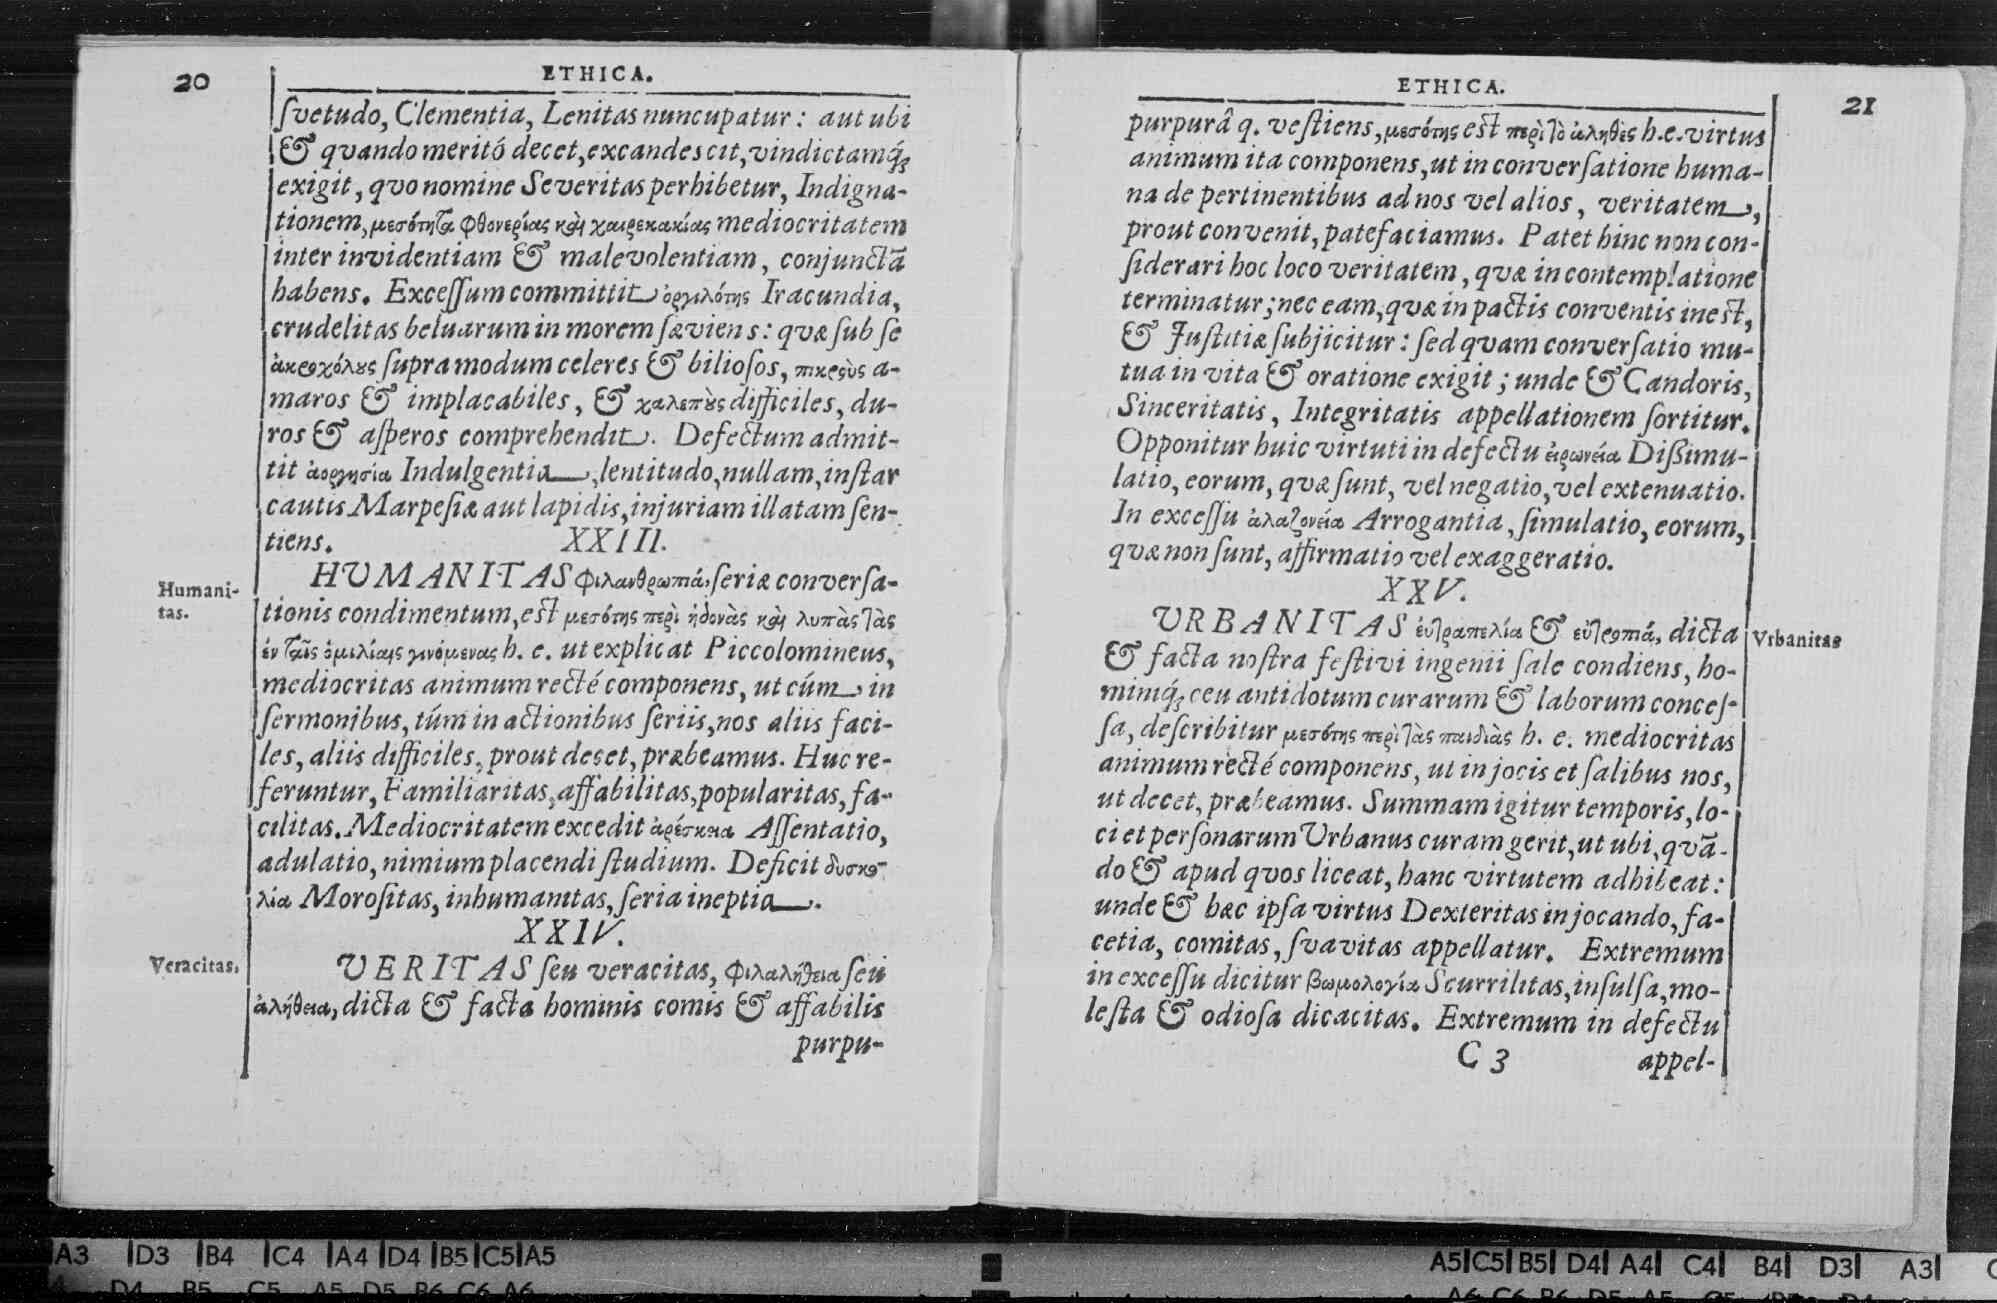 20
ETHICA.
ſvetudo, Clementia, Lenitas nuncupatur: aut ubi
& qvando meritó decet, excandescit, vindictamq́;
exigit, qvo nomine Severitas perhibetur, Indigna-
tionem, μεσότητα φθονερίας καὶ χαιρεκακίας mediocritatem
inter invidentiam & malevolentiam, conjunctã
habens. Exceſſum committit ὀργιλότης Iracundia,
crudelitas beluarum in morem ſæviens: quæ ſub ſe
ἀκροχόλȣς ſupra modum celeres & bilioſos, πικρȣ̀ς a-
maros & implacabiles, & χαλεπȣ̀ς difficiles, du-
ros & aſperos comprehendit. Defectum admit-
tit ἀοργησία Indulgentia, lentitudo, nullam, inſtar
cautis Marpeſiæ aut lapidis, injuriam illatam ſen-
tiens.
XXIII.
Humani-
tas.
HUMANITAS φιλανθρωπιά, ſeriæ converſa-
tionis condimentum, est μεσότης περὶ ἡδονὰς καὶ λυπὰς τὰς
ἐν ταῖς ὁμιλίαις γινόμενας h. e. ut explicat Piccolomineus,
mediocritas animum recté componens, ut cúm in
ſermonibus, túm in actionibus ſeriis, nos aliis faci-
les, aliis difficiles, prout decet, præbeamus. Huc re-
feruntur, Familiaritas, affabilitas, popularitas, fa-
cilitas. Mediocritatem excedit ἀρέσκεια Aſſentatio,
adulatio, nimium placendi ſtudium. Deficit δυσκο-
λία Moroſitas, inhumanitas, ſeria ineptia.
XXIV.
Veracitas.
VERITAS ſeu veracitas, φιλαλήθεια ſeu
ἀλήθεια, dicta & facta hominis comis & affabilis
purpu-
ETHICA.
21
purpurâ q. veſtiens, μεσότης est περὶ τὸ ἀληθὲς h. e. virtus
animum ita componens, ut in converſatione huma-
na de pertinentibus ad nos vel alios, veritatem,
prout convenit, patefaciamus. Patet hinc non con-
ſiderari hoc loco veritatem, quæ in contemplatione
terminatur; nec eam, quæ in pactis conventis inest,
& Juſtitiæ ſubjicitur: ſed qvam converſatio mu-
tua in vita & oratione exigit; unde & Candoris,
Sinceritatis, Integritatis appellationem ſortitur.
Opponitur huic virtuti in defectu εἰρωνεία Dißimu-
latio, eorum, quæ ſunt, vel negatio, vel extenuatio.
In exceſſu ἀλαζονεία Arrogantia, ſimulatio, eorum,
quæ non ſunt, affirmatio vel exaggeratio.
XXV.
URBANITAS ἐυτραπελία & εὐτροπιά, dicta
Vrbanitas
& facta noſtra feſtivi ingenii ſale condiens, ho-
minıq́; ceu antidotum curarum & laborum conceſ-
ſa, deſcribitur μεσότης περὶ τὰς παιδιὰς h. e. mediocritas
animum recté componens, ut in jocis et ſalibus nos,
ut decet, præbeamus. Summam igitur temporis, lo-
ci et perſonarum Urbanus curam gerit, ut ubi, qvã-
do & apud quos liceat, hanc virtutem adhibeat:
unde & hæc ipſa virtus Dexteritas in jocando, fa-
cetia, comitas, ſvavitas appellatur. Extremum
in exceſſu dicitur βωμολογία Scurrilitas, inſulſa, mo-
leſta & odioſa dicacitas. Extremum in defectu
C 3
appel-
A3 D3 B4 C4 A4 D4 B5 C5 A5
A5 C5 B5 D4 A4 C4 B4 D3 A3